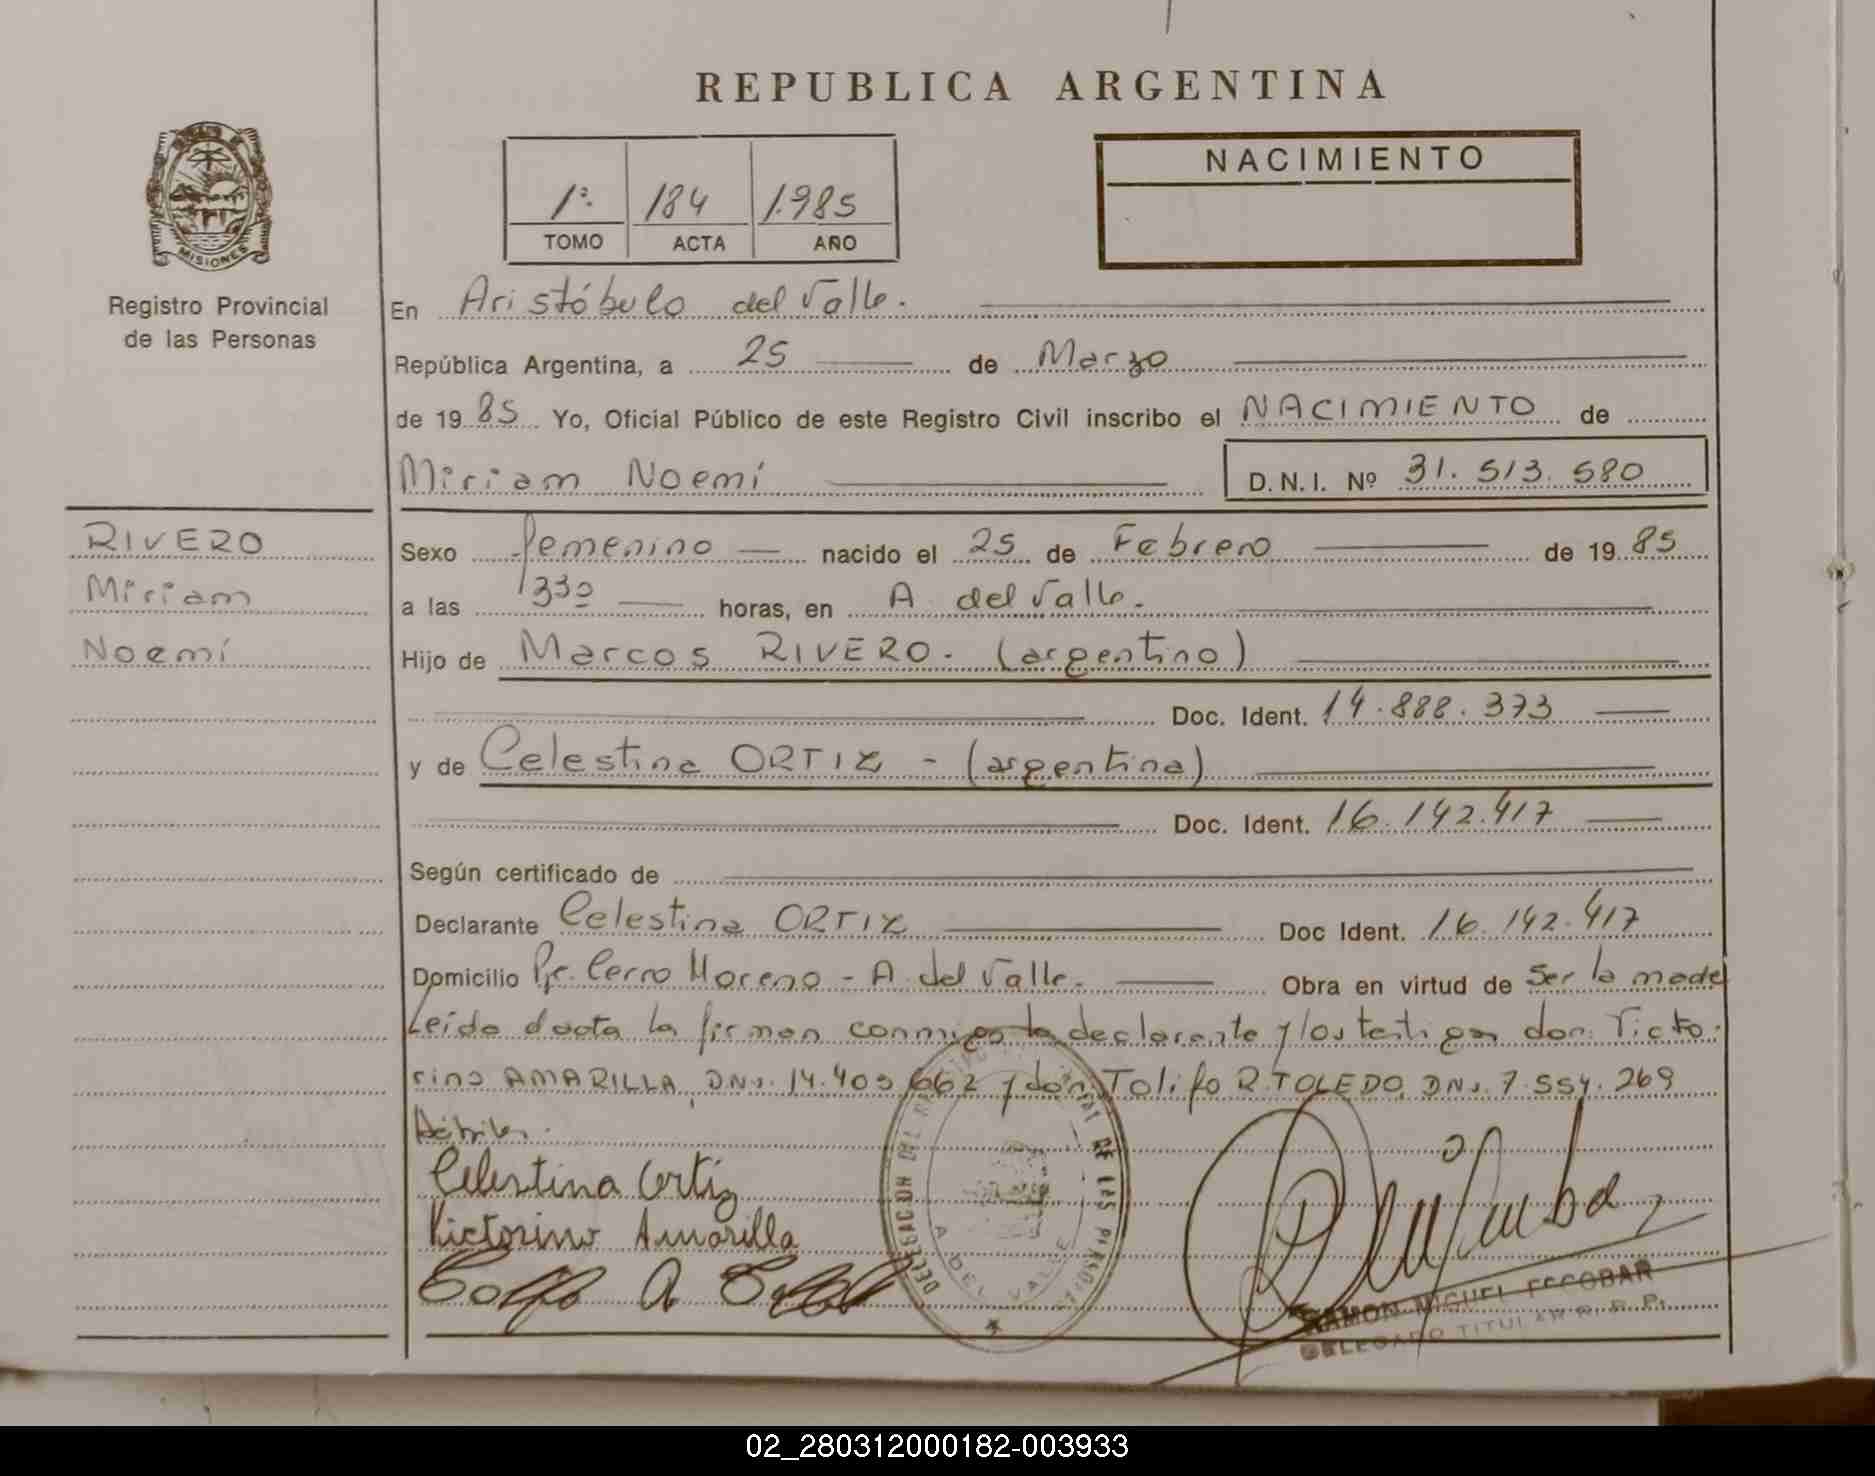 REPUBLICA ARGENTINA
NACIMIENTO
1º. 184 1.985
TOMO ACTA AÑO
MISIONES
Registro Provincial
de las Personas
En Aristóbulo del Valle.
República Argentina, a 25 de Marzo
de 19 85 Yo, Oficial Público de este Registro Civil inscribo el NACIMIENTO de
Miriam Noemí D.N.I. Nº 31.513.580
RIVERO
Miriam
Noemí
Sexo femenino nacido el 25 de Febrero de 19 85
a las 1330 horas, en A. del Valle.
Hijo de Marcos RIVERO. (argentino)
Doc. Ident. 14.888.373
y de Celestina ORTIZ - (argentina)
Doc. Ident. 16.142.417
Según certificado de
Declarante Celestina ORTIZ Doc Ident. 16.142.417
Domicilio Cerro Moreno - A. del Valle. Obra en virtud de Ser la madre
Leída la firman conmigo la declarante y los testigos don Victo-
rino AMARILLA, DNI. 14.409.662 y don R. TOLEDO, DNI. 7.554.269
Celestina Ortiz
Victorino Amarilla
DELEGACION DEL REGISTRO DE LAS PERSONAS
A. DEL VALLE
RAMON MIGUEL ESCOBAR
DELEGADO TITULAR R. P. P.
02_280312000182-003933